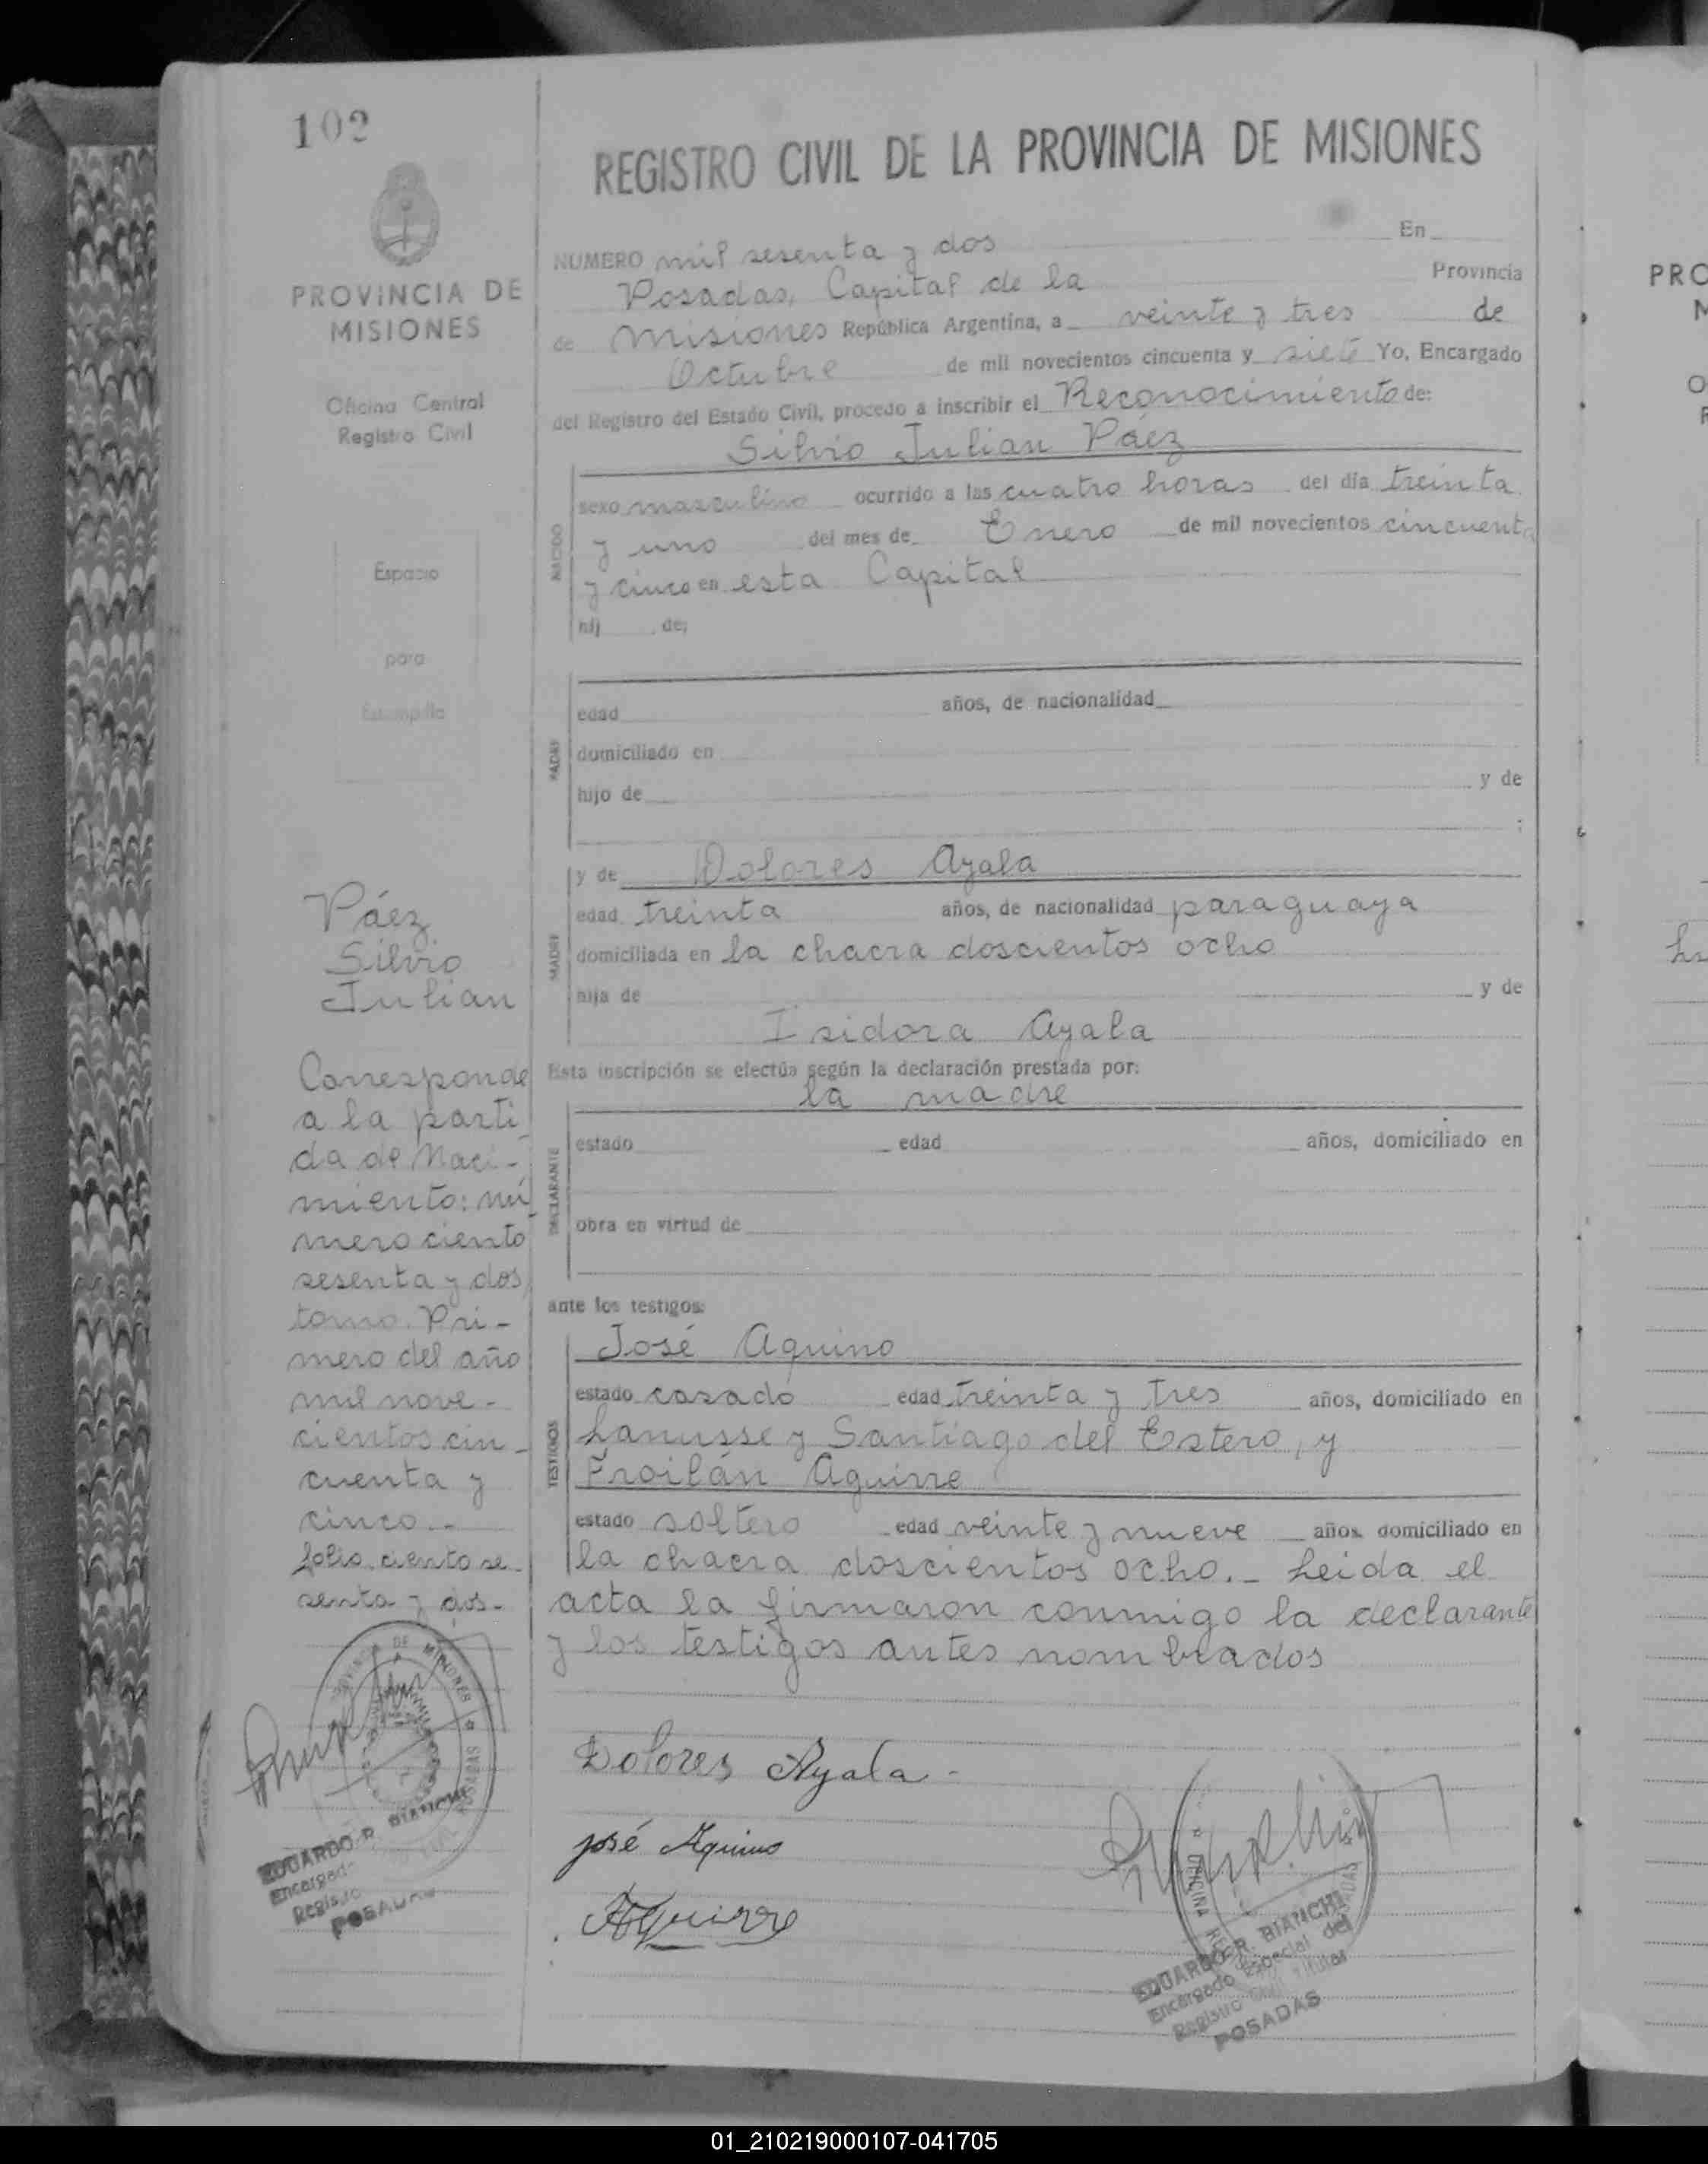 102
PROVINCIA DE
MISIONES
Oficina Central
Registro Civil
Espacio
para
Estampilla
Páez
Silvio
Julian
Corresponde
a la parti
da de Naci-
miento: nú
mero ciento
sesenta y dos
tomo. Pri-
mero del año
mil nove-
cientos cin-
cuenta y
cinco.-
folio ciento se-
senta y dos-
PROVINCIA DE MISIONES
POSADAS
EDUARDO R. BIANCHI
Encargado
Registro
POSADAS
REGISTRO CIVIL DE LA PROVINCIA DE MISIONES
NUMERO mil sesenta y dos En
Posadas, Capital de la Provincia
de Misiones República Argentina, a veinte y tres de
Octubre de mil novecientos cincuenta y siete Yo, Encargado
del Registro del Estado Civil, procedo a inscribir el Reconocimiento de:
Silvio Julian Páez
NACIDO
sexo masculino ocurrido a las cuatro horas del día treinta
y uno del mes de Enero de mil novecientos cincuenta
y cinco en esta Capital
hij de;
PADRE
edad años, de nacionalidad
domiciliado en
hijo de y de
;
MADRE
y de Dolores Ayala
edad treinta años, de nacionalidad paraguaya
domiciliada en la chacra doscientos ocho
hija de y de
Isidora Ayala
Esta inscripción se efectúa según la declaración prestada por:
la madre
DECLARANTE
estado edad años, domiciliado en
obra en virtud de
ante los testigos:
TESTIGOS
José Aquino
estado casado edad treinta y tres años, domiciliado en
Lanusse y Santiago del Estero, y
Froilán Aguirre
estado soltero edad veinte y nueve años domiciliado en
la chacra doscientos ocho.- Leida el
acta la firmaron conmigo la declarante
y los testigos antes nombrados
Dolores Ayala -
josé Aquino
Aguirre
OFICINA
EDUARDO R. BIANCHI
Encargado Especial del
Registro Civil Titular
POSADAS
PRO
M
01_210219000107-041705